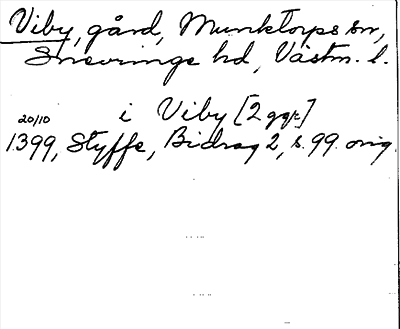 Viby, gård, Munktorps sn,
Snevringe hd, Västm. l.
i Viby [2 ggr]
20/10
1399, Styffe, Bidrag 2, s. 99. orig.